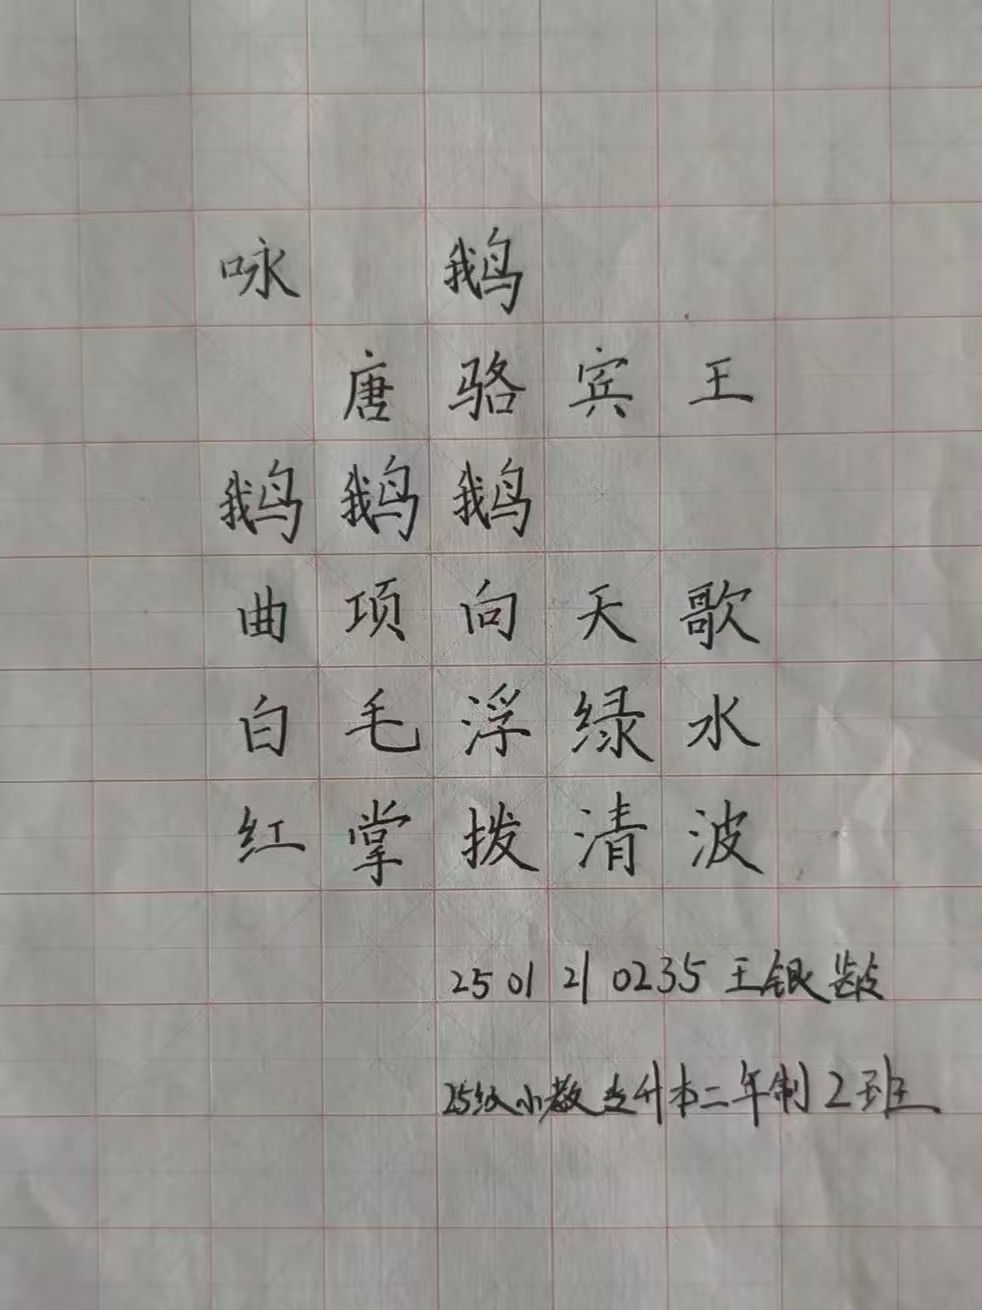 咏 鹅
唐 骆 宾 王
鹅 鹅 鹅
曲 项 向 天 歌
白 毛 浮 绿 水
红 掌 拨 清 波
2501210235 王银
25级小教专升本二年制2班